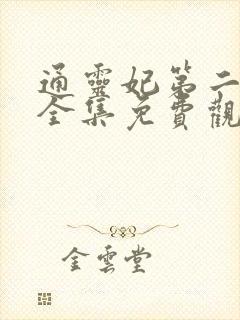 通靈妃第二
全集免費觀
金雲堂